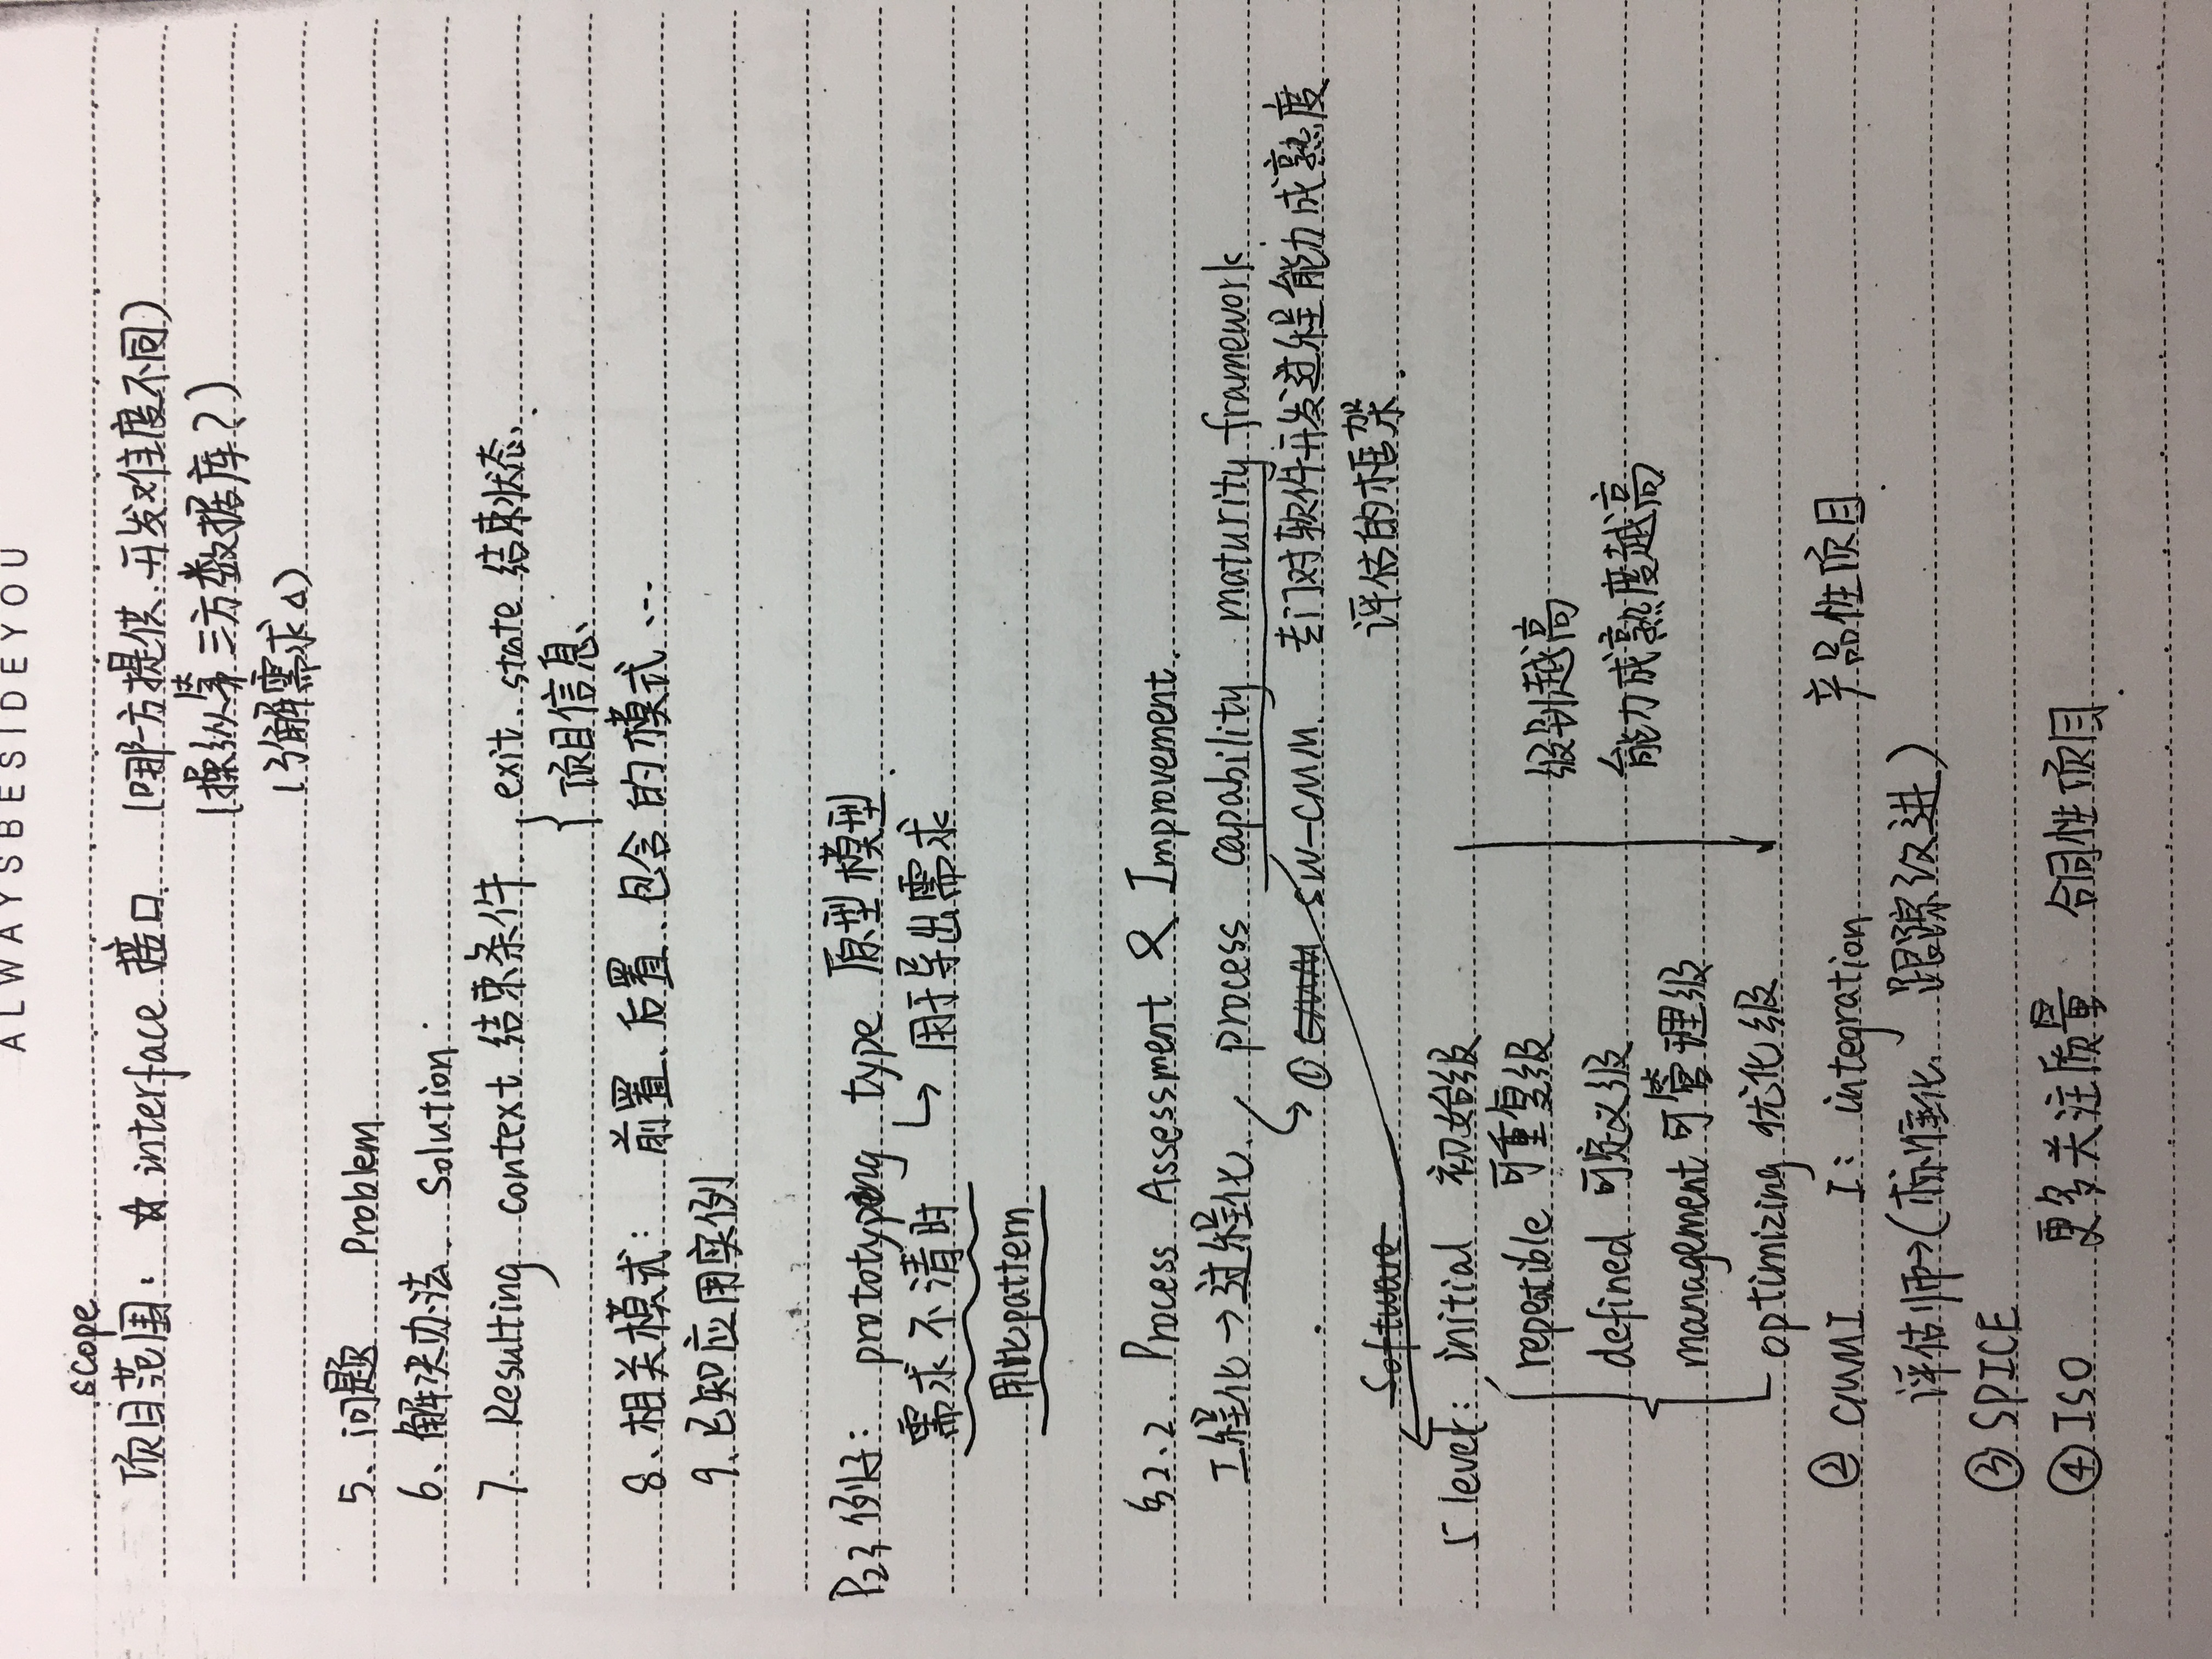 ALWAYSBESIDEYOU
scope
项目范围: ☆ interface 接口 (哪一方提供、开发难度不同)
(操纵第三方数据库?)
(了解需求△)
5、问题 Problem
6、解决办法 Solution
7. Resulting context 结束条件 exit state 结束状态、
项目信息、
8、相关模式: 前置、后置、包含的模式…
9、已知应用实例
P23 例子: prototyping type 原型模型
需求不清时 ↳ 用于导出需求
用此pattern
§2.2. Process Assessment & Improvement.
工程化→过程化. process capability maturity framework
① CMM SW-CMM. 专门对软件开发过程能力成熟度
Software 评估的框架.
5 level: initial 初始级
repeatible 可重复级
级别越高
defined 可定义级
能力成熟度越高
management 可管理级
optimizing 优化级
② CMMI I: integration 产品性项目
评估师→(标准化、跟踪改进)
③ SPICE
④ ISO 更多关注质量 合同性项目